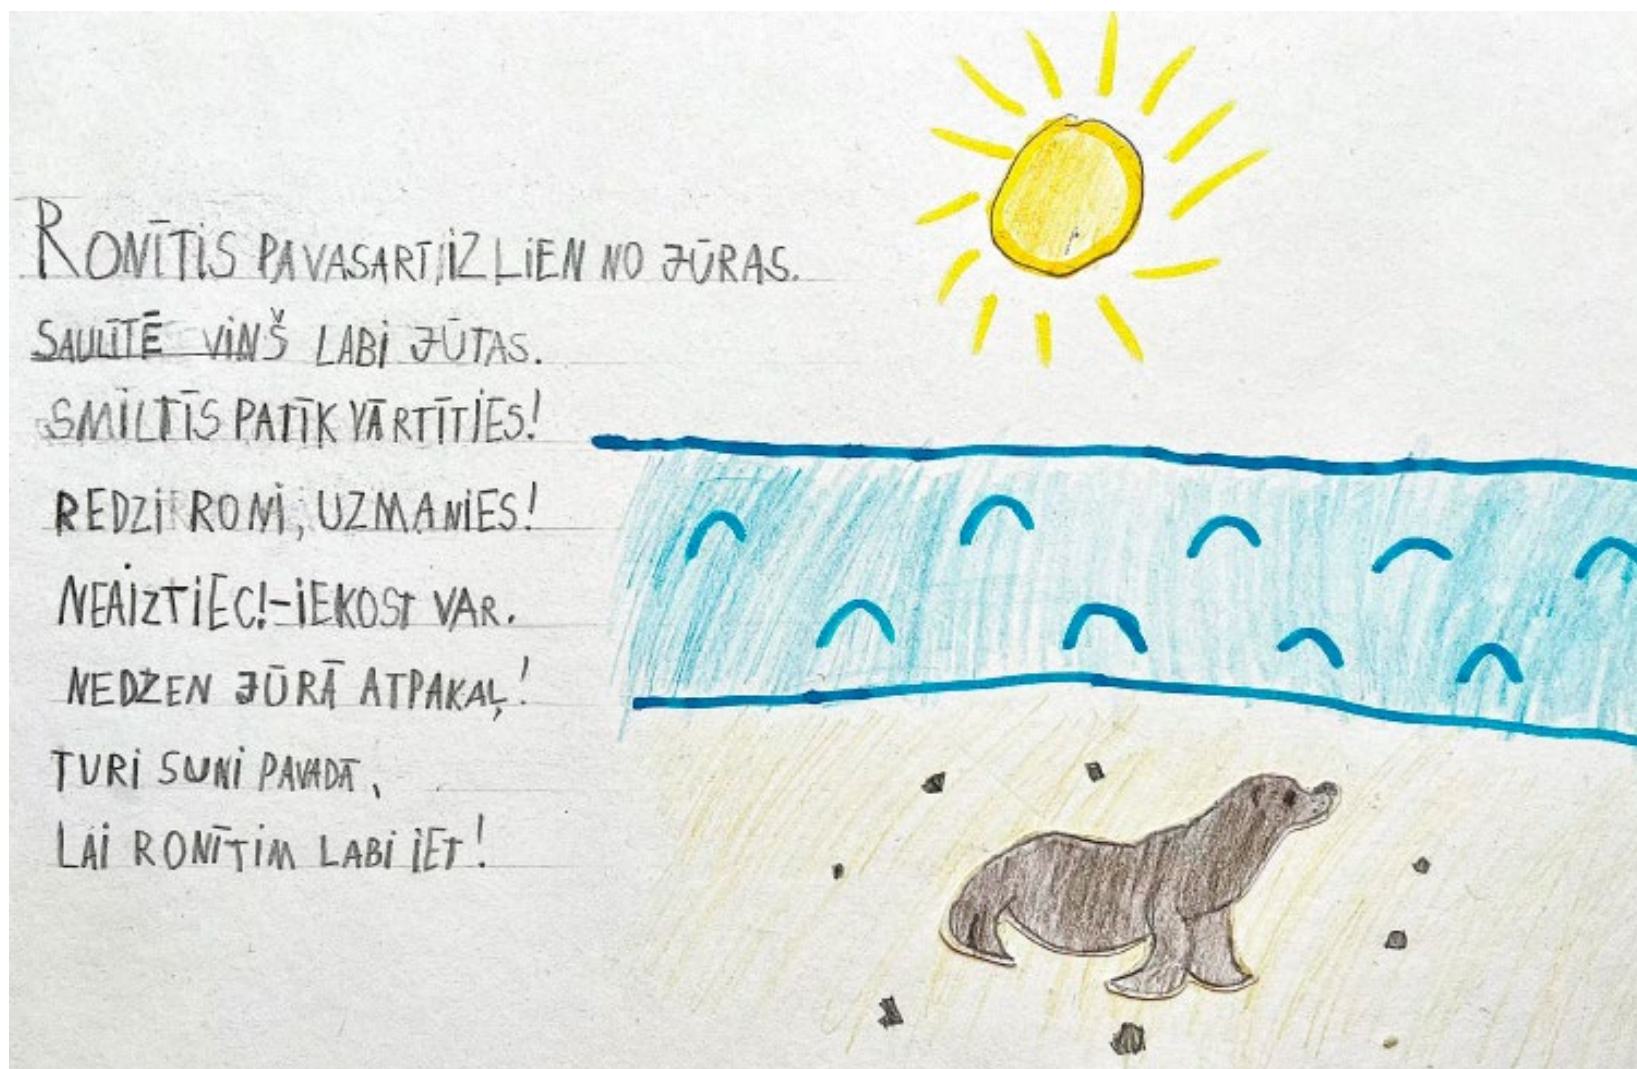 RONĪTIS PAVASARĪ IZLIEN NO JŪRAS.
SAULĪTĒ VIŅŠ LABI JŪTAS.
SMILTĪS PATĪK VĀRTĪTIES!
REDZI RONI, UZMANIES!
NEAIZTIEC!-IEKOST VAR.
NEDZEN JŪRĀ ATPAKAĻ!
TURI SUNI PAVADĀ,
LAI RONĪTIM LABI IET!